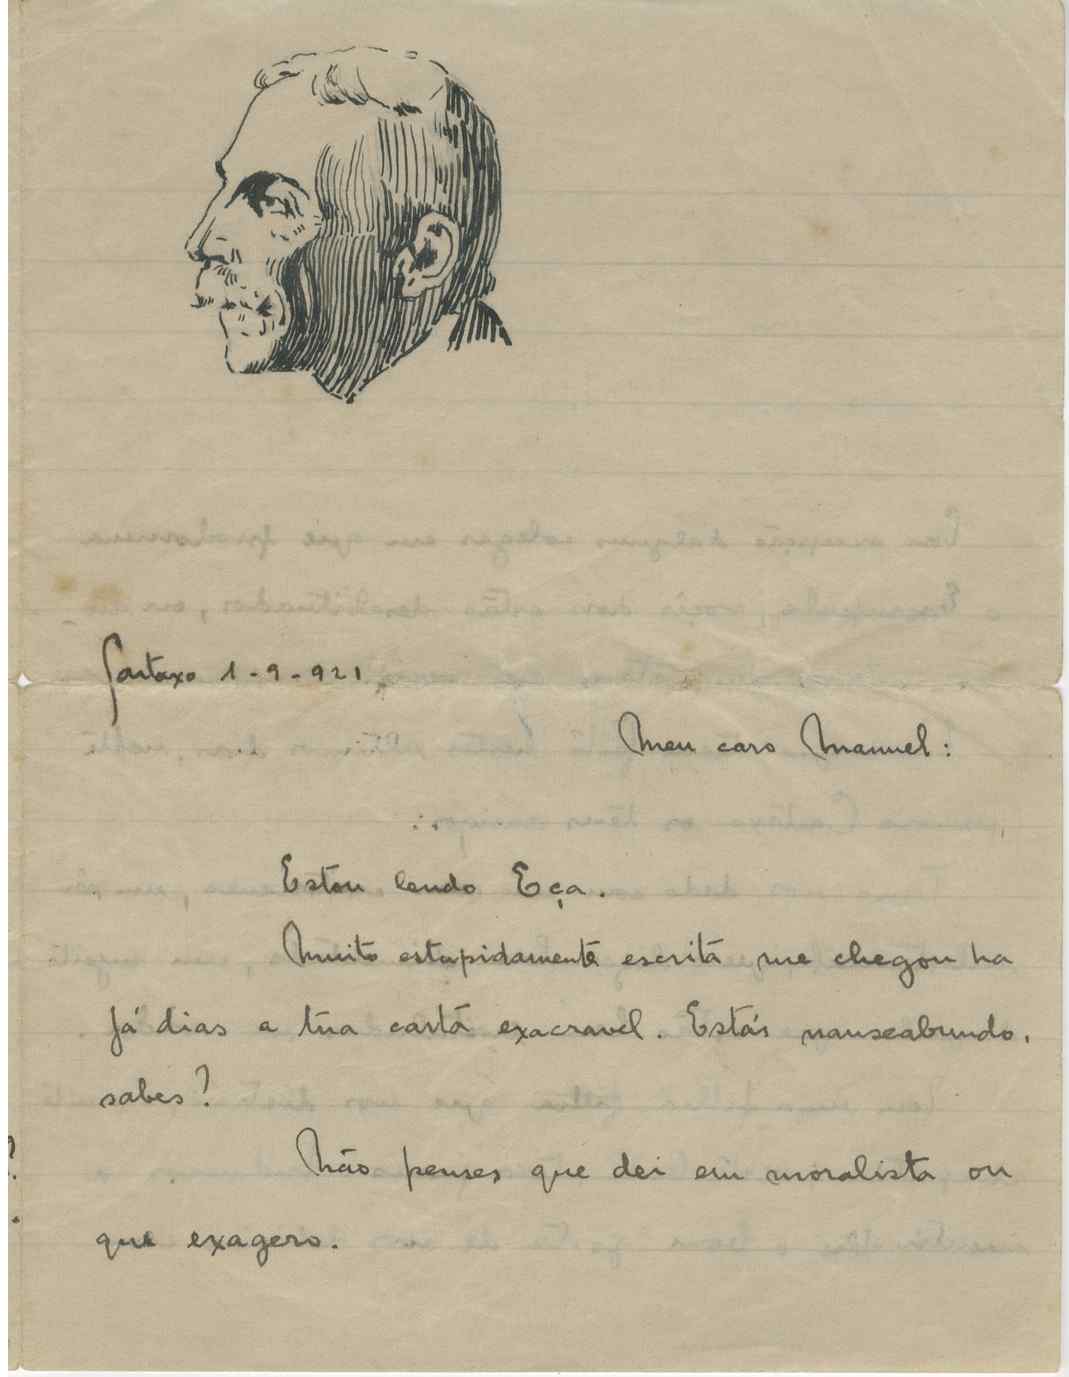 Cartaxo 1-9-921
Meu caro Manuel:
Estou lendo Eça.
Muito estupidamente escrita me chegou ha
já dias a tua carta exacravel. Estás nauseabundo,
sabes?
Não penses que dei em moralista ou
que exagero.